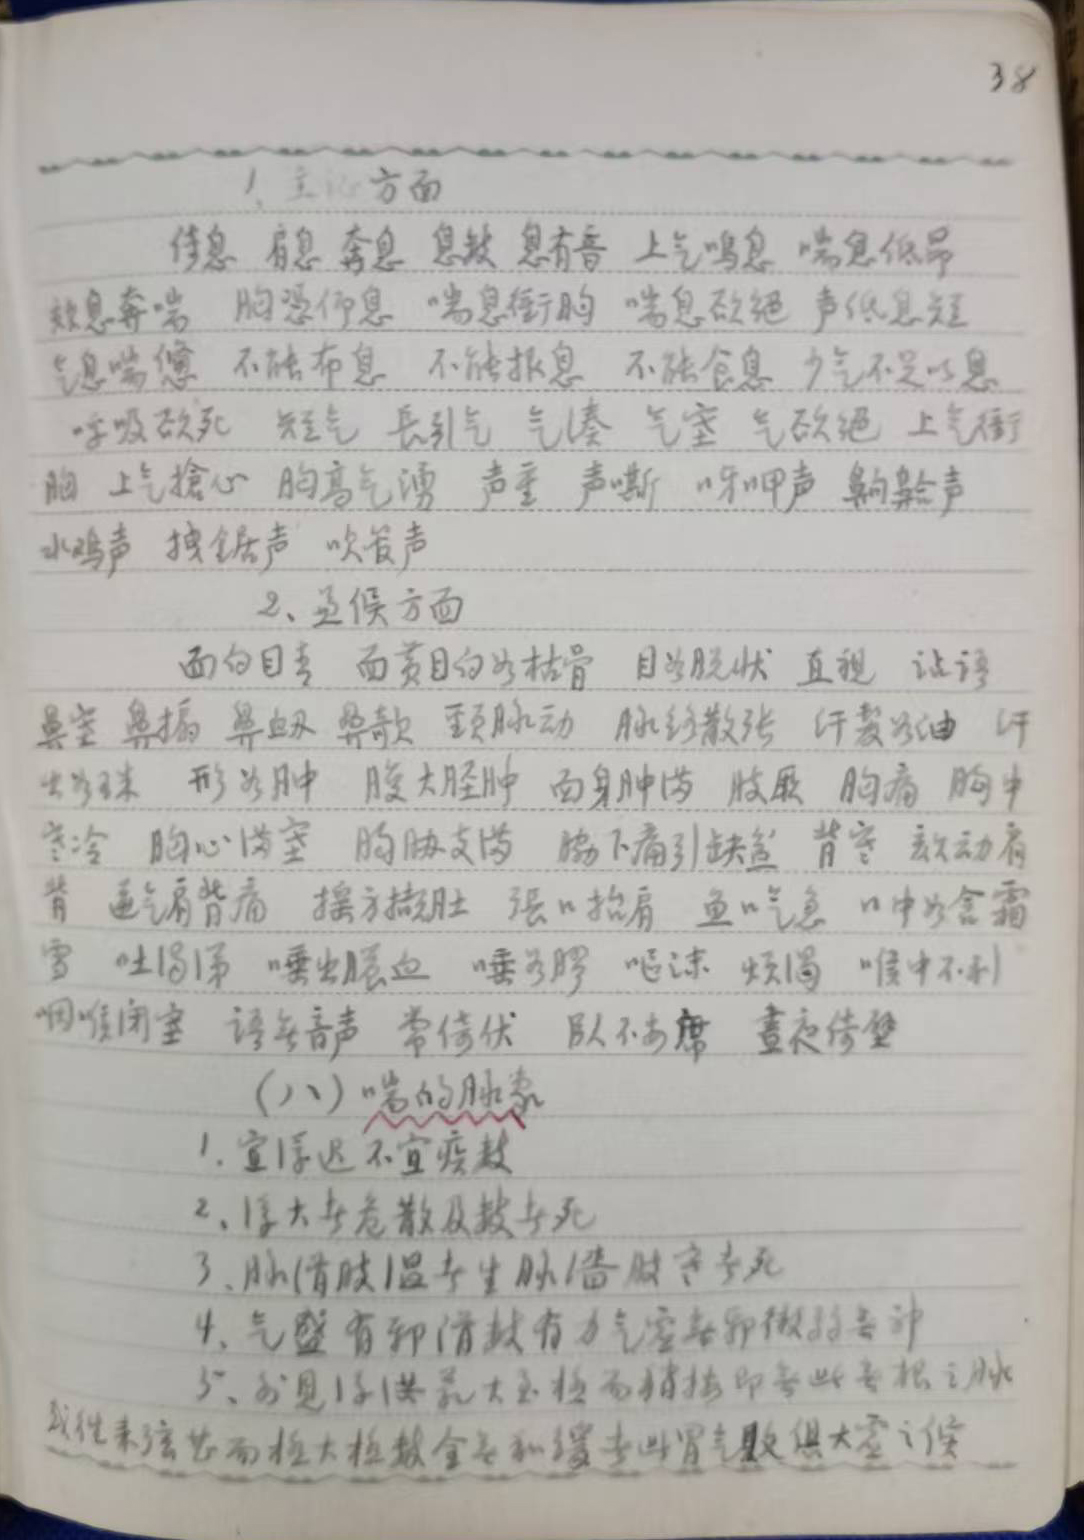 38
1、主证方面
倚息 肩息 奔息 息数 息有音 上气鸣息 喘息低昂
咳息奔喘 胸憑仰息 喘息衝胸 喘息欲绝 声低息短
气息喘惫 不能布息 不能报息 不能食息 少气不足以息
呼吸欲死 短气 長引气 气凑 气窒 气欲绝 上气衝
胸 上气搶心 胸高气湧 声重 声嘶 呀呷声 齁齡声
水鸡声 拽锯声 吹管声
2、兼候方面
面白目青 面黄目白如枯骨 目如脱状 直視 谵语
鼻窒 鼻搧 鼻衄 鼻欹 颈脉动 脉络散张 汗发如油 汗
出如珠 形如肿 腹大胫肿 面身肿满 肢厥 胸痛 胸中
寒冷 胸心满窒 胸胁支满 脇下痛引缺盆 背寒 咳动肩
背 逆气肩背痛 摇方撷肚 張口抬肩 鱼口气急 口中如含霜
雪 吐涡涕 唾出膿血 唾如膠 呕沫 烦渴 喉中不利
咽喉闭窒 語無音声 常倚伏 臥不安席 晝夜倚壁
(八)喘的脉象
1.宜浮迟不宜疾数
2、浮大者危散及数者死
3、脉滑肢温者生脉濇肢寒者死
4、气盛有邪滑数有力气虚無邪微弱無神
5、如见浮洪芤大至极而稍按即無此無根之脉
或往来弦甚而极大极数全無和缓者此胃气败俱大虚之候